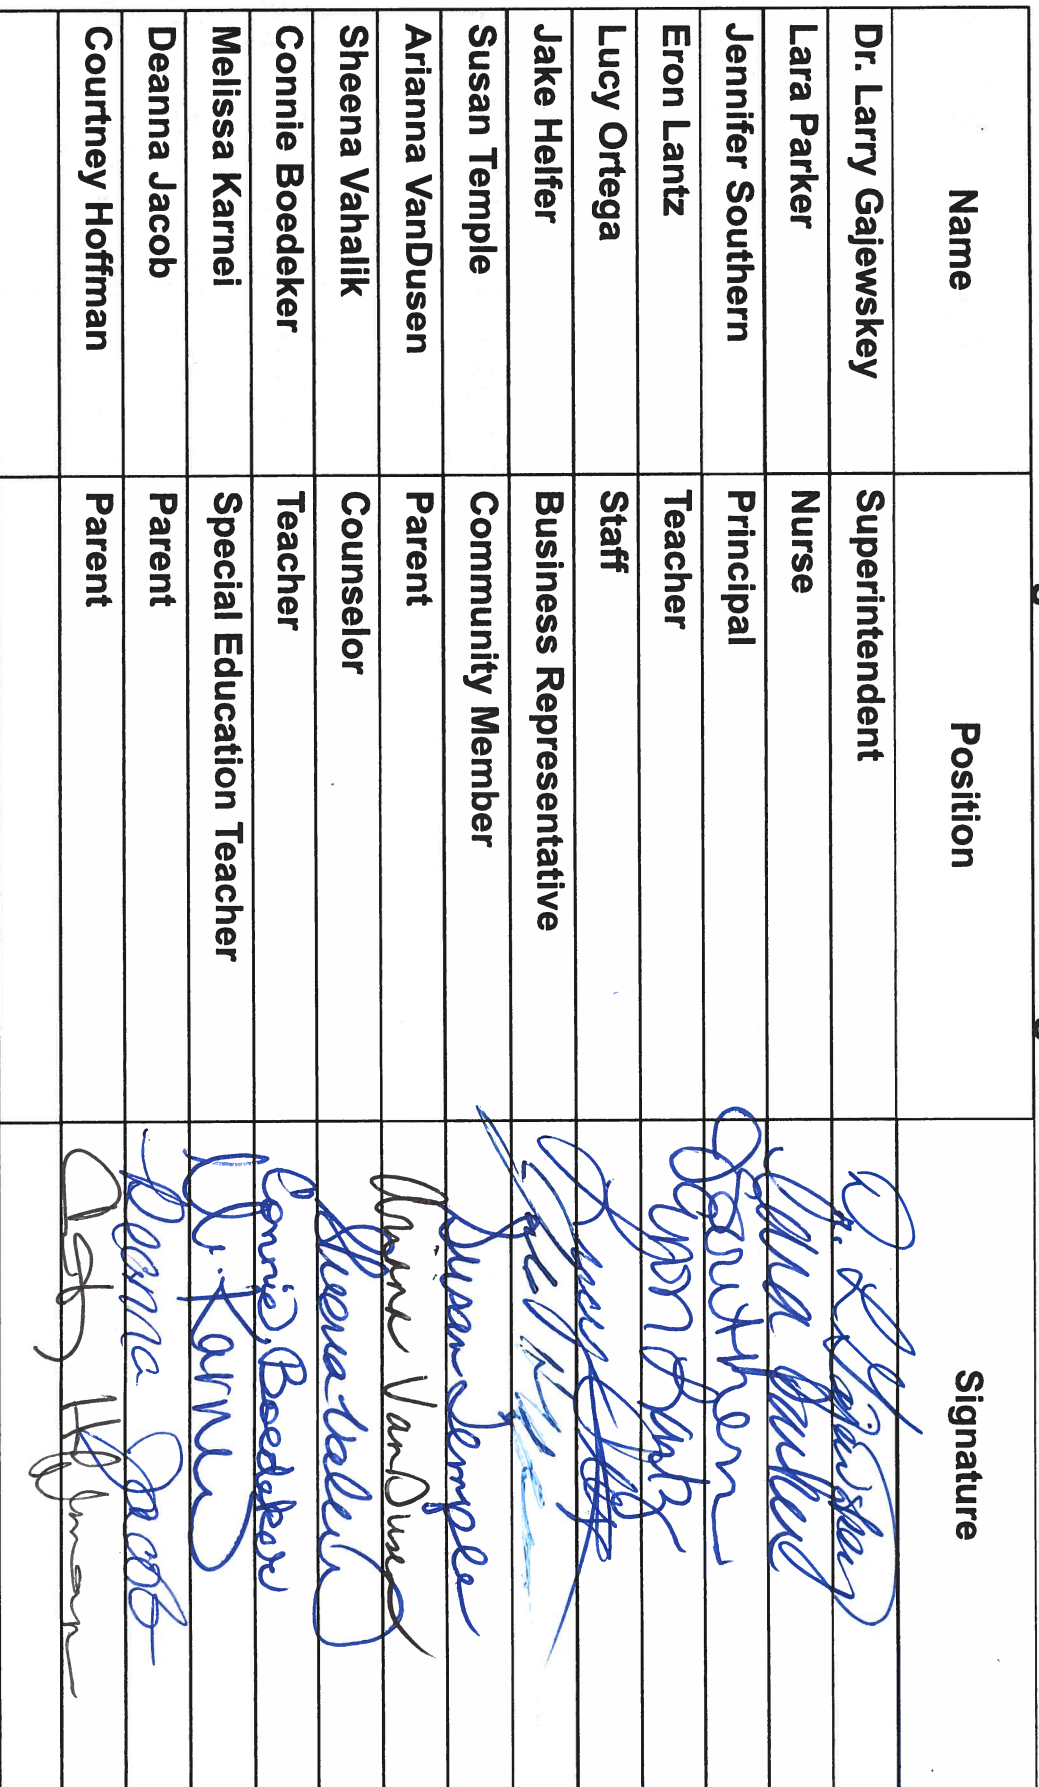 Name Position Signature
Dr. Larry Gajewskey Superintendent Dr. L Gajewskey
Lara Parker Nurse Lara Parker
Jennifer Southern Principal J Southern
Eron Lantz Teacher Eron Lantz
Lucy Ortega Staff Lucy
Jake Helfer Business Representative
Susan Temple Community Member Susan Temple
Arianna VanDusen Parent Arianna VanDusen
Sheena Vahalik Counselor Sheena Vahalik
Connie Boedeker Teacher Connie Boedeker
Melissa Karnei Special Education Teacher M. Karnei
Deanna Jacob Parent Deanna Jacob
Courtney Hoffman Parent Hoffman